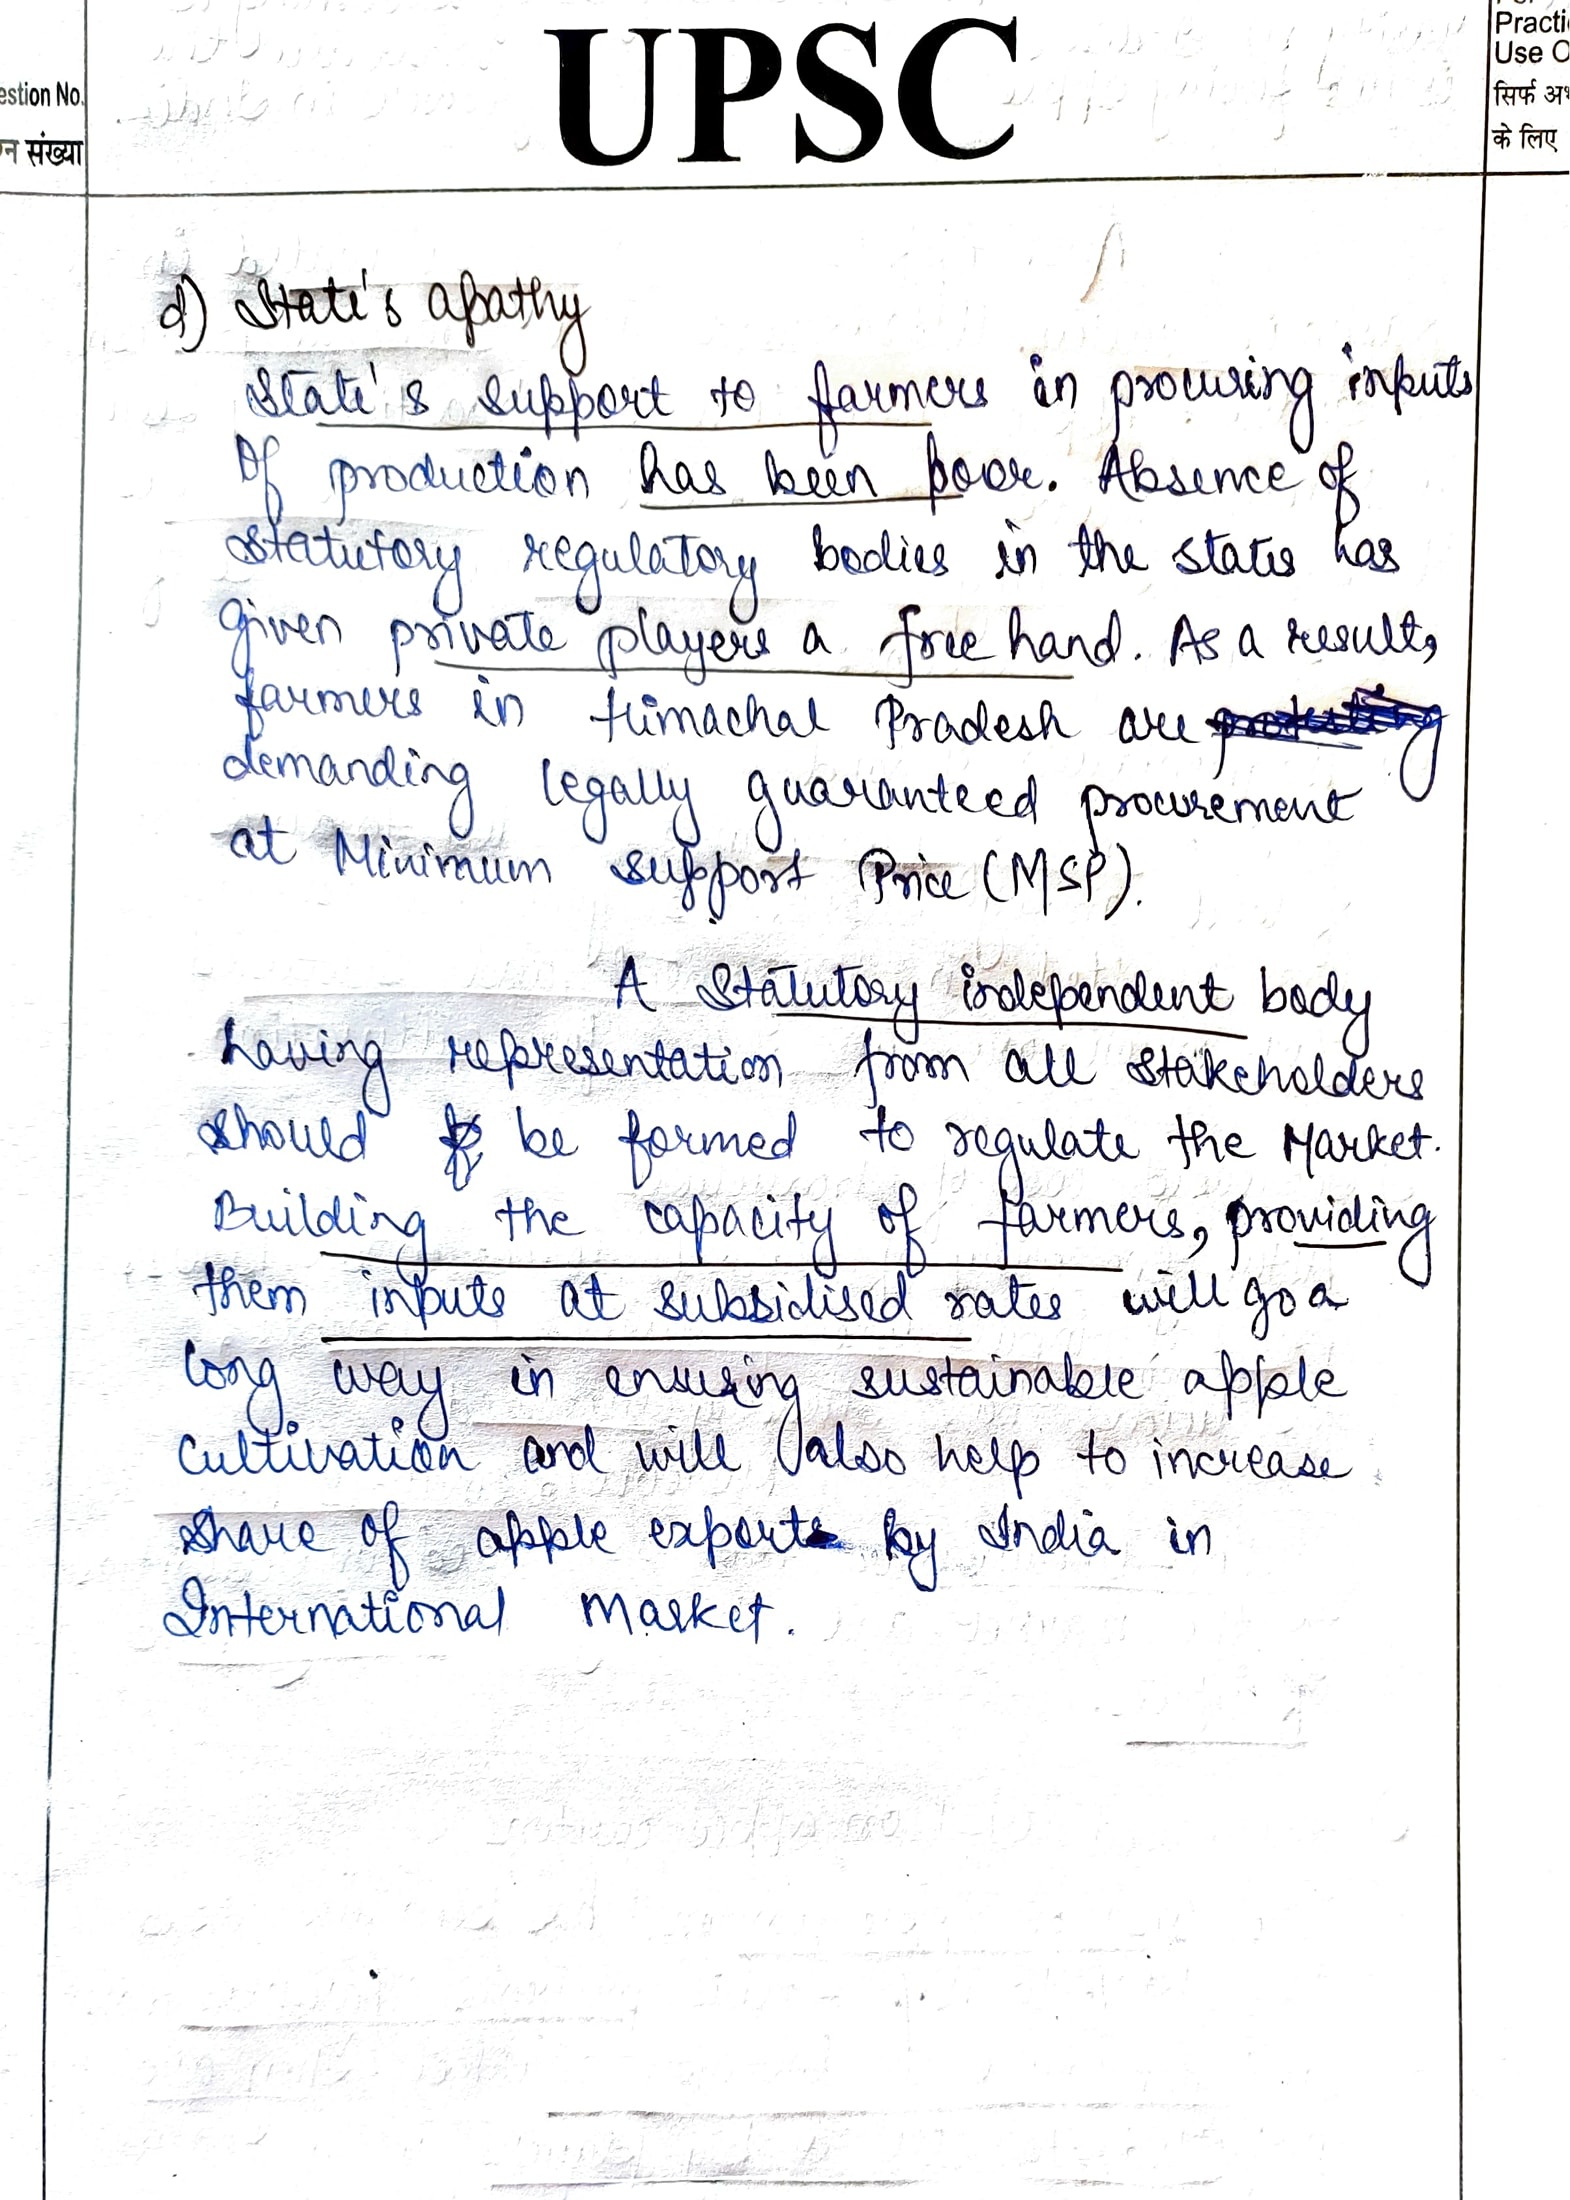 UPSC
estion No.
न संख्या
Practi
Use O
सिर्फ अभ
के लिए
d) State's apathy
State's support to farmers in procuring inputs
Of production has been poor. Absence of
statutory regulatory bodies in the states has
given private players a free hand. As a result,
farmers in Himachal Pradesh are
demanding legally guaranteed procurement
at Minimum support Price (MSP).
A Statutory independent body
having representation from all stakeholders
should be formed to regulate the Market.
Building the capacity of farmers, providing
them inputs at subsidised rates will go a
long way in ensuring sustainable apple
Cultivation and will also help to increase
share of apple exports by India in
International Market.